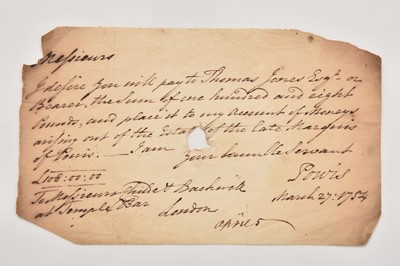 Messieurs
I desire you will pay to Thomas Jones Esqr. or
Bearer, the Sum of one hundred and eight
Pounds, and place it to my Account of Moneys
arising out of the Estate of the Late Marquis
of Powis. — I am your humble Servant
£108:00:00 Powis
To Messieurs Child & Backwell March 27: 1754
at Temple Bar London
april 5